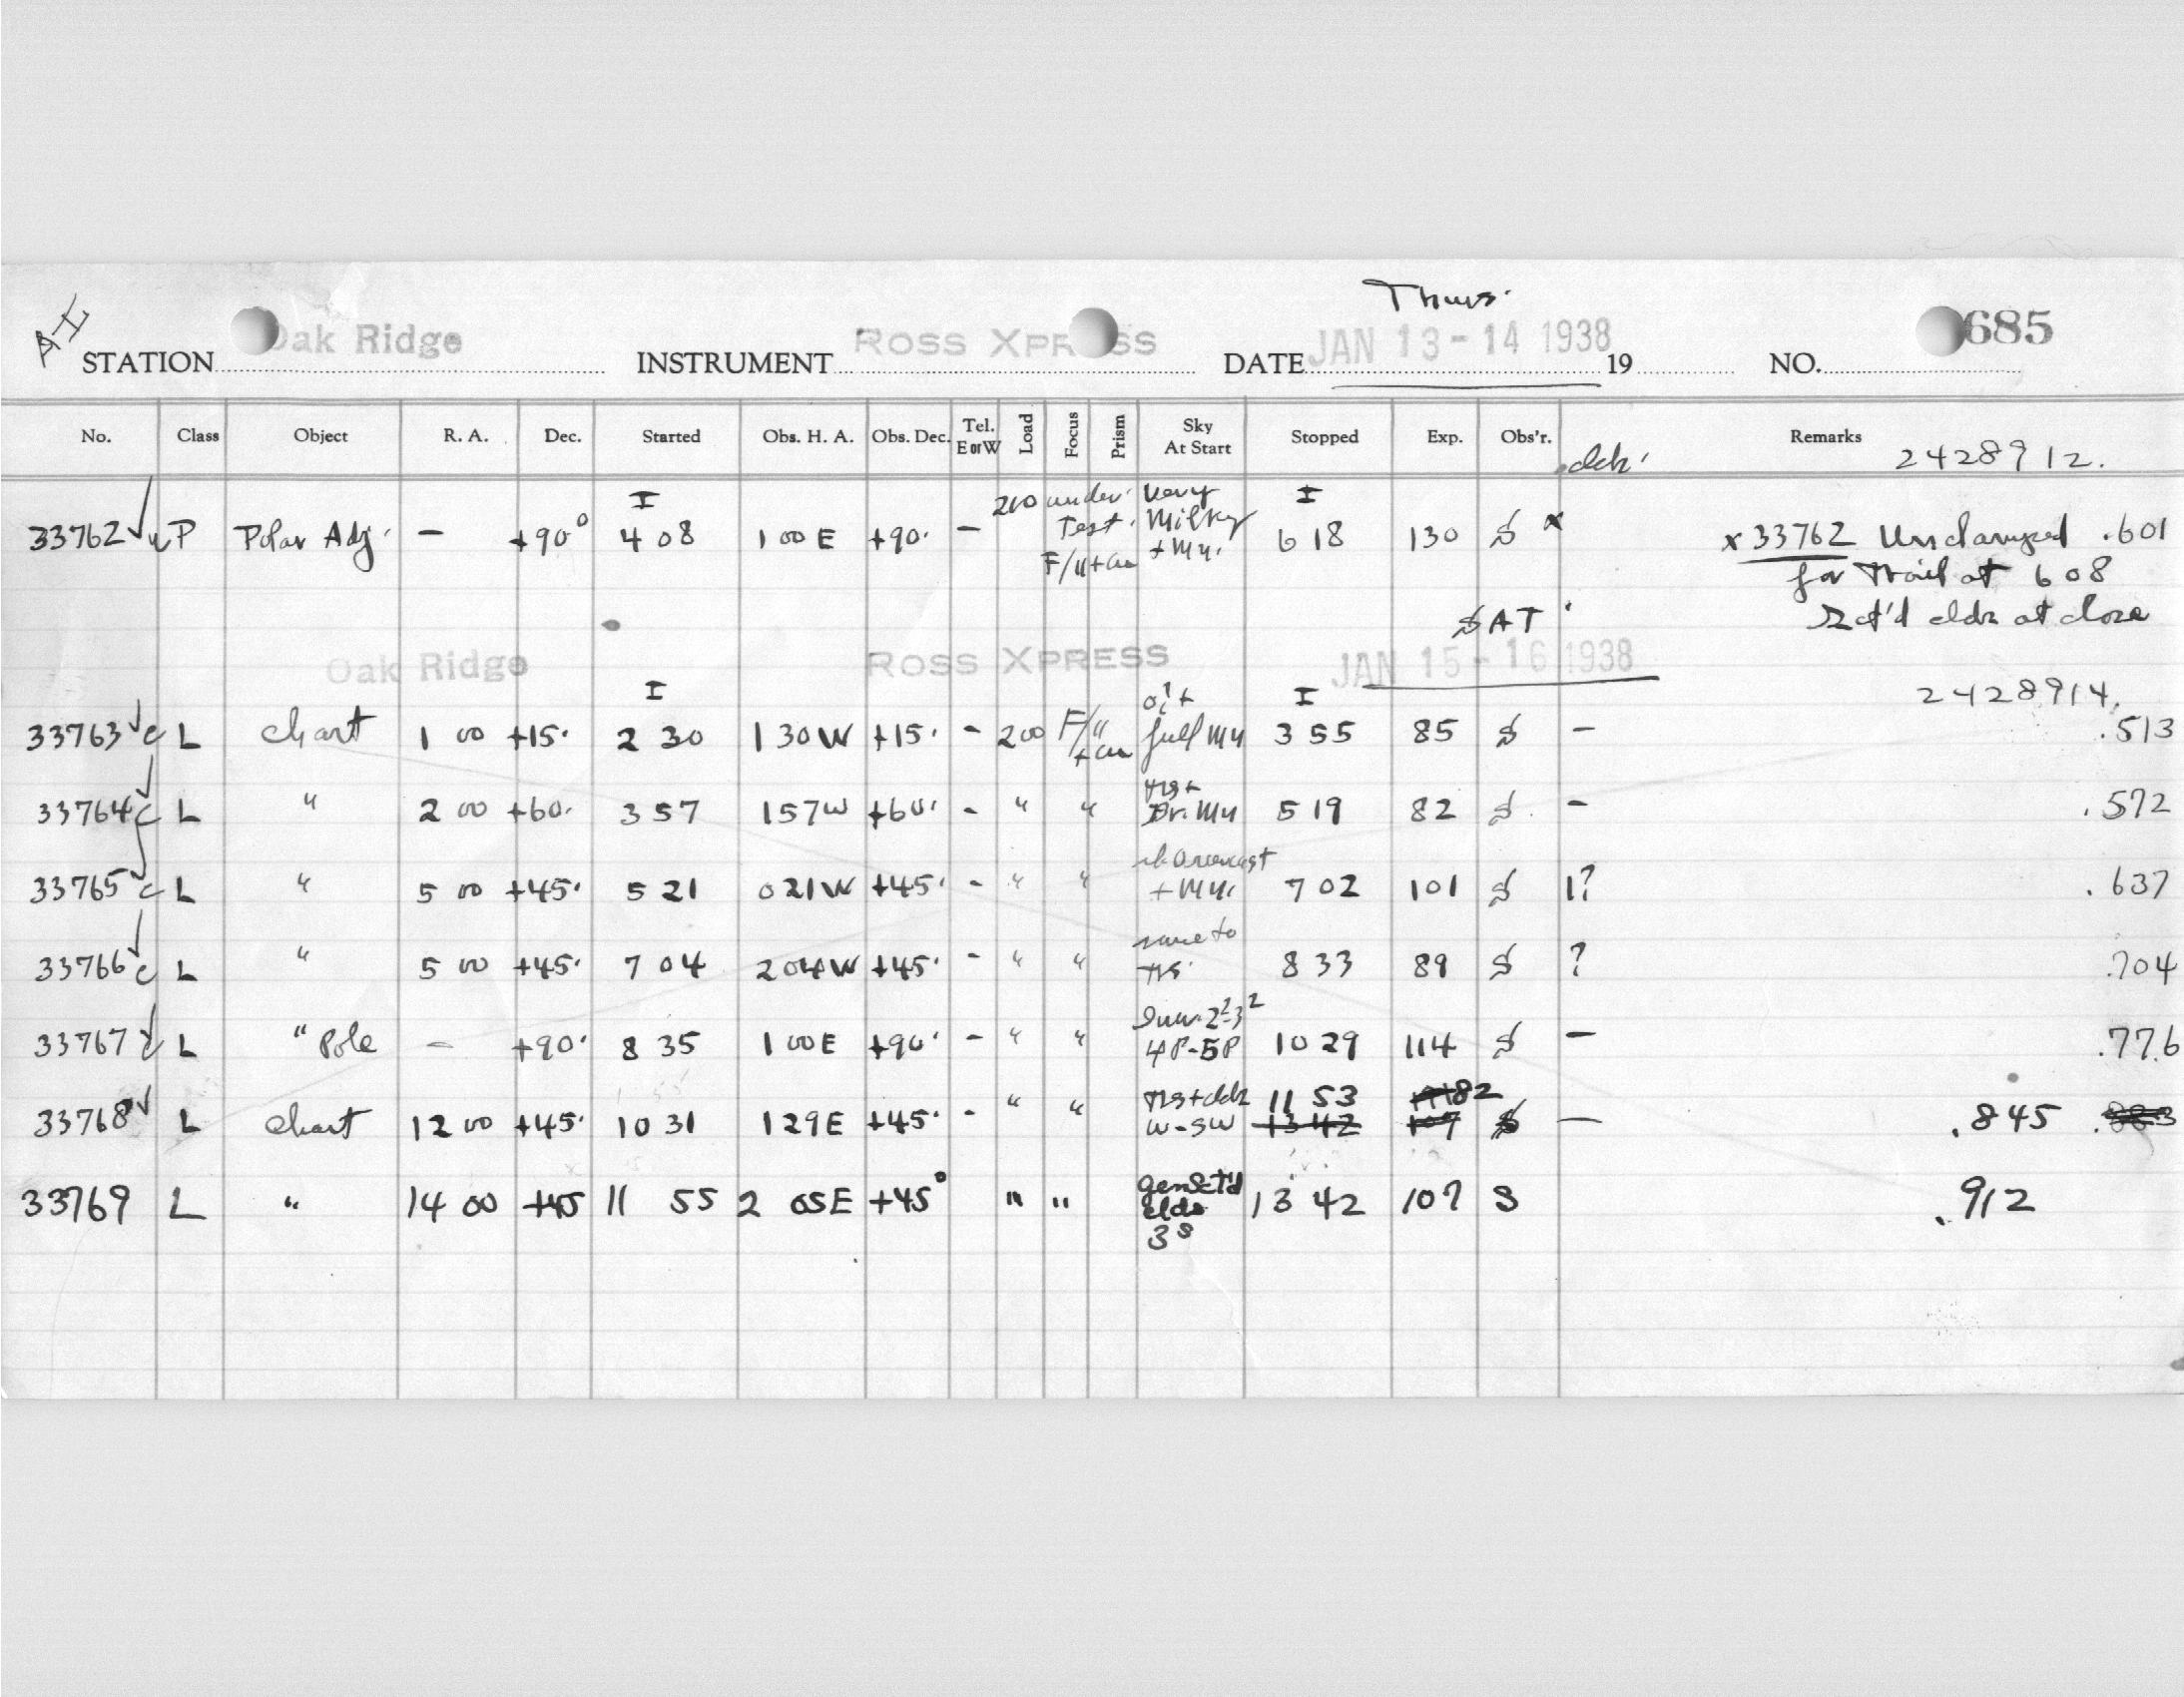 Thurs.
AI
STATION Oak Ridge INSTRUMENT ROSS XPRESS DATE JAN 13-14 1938 19 NO. 685
No. Class Object R. A. Dec. Started Obs. H. A. Obs. Dec. Tel. E or W Load Focus Prism Sky At Start Stopped Exp. Obs'r. Remarks
2428912.
I I
33762 P Polar Adj. - +90° 4 08 1 00 E +90. - 200 under Test. F/11+ Very Milky + 6 18 130 S x x 33762 Unclamped .601
for Trail at 6 08
Sct'd clds at close
S AT
Oak Ridge ROSS XPRESS JAN 15-16 1938
I I 2428914.
33763 c L chart 1 00 +15. 2 30 1 30 W +15. - 200 F/11 full 3 55 85 S - .513
33764 c L " 2 00 +60. 3 57 1 57 W +60. - " " Br. 5 19 82 S - .572
33765 c L " 5 00 +45. 5 21 0 21 W +45. - " " overcast 7 02 101 S 1? .637
33766 c L " 5 00 +45. 7 04 2 04 W +45. - " " same to 8 33 89 S ? .704
33767 c L " Pole - +90. 8 35 1 00 E +90. - " " 4P-5P 10 29 114 S - .776
33768 L chart 12 00 +45. 10 31 1 29 E +45. - " " W-SW 11 53 82 S - .845
13 42 107
33769 L " 14 00 +45 11 55 2 05 E +45° " " gen Sct'd clds 3 s 13 42 107 S .912